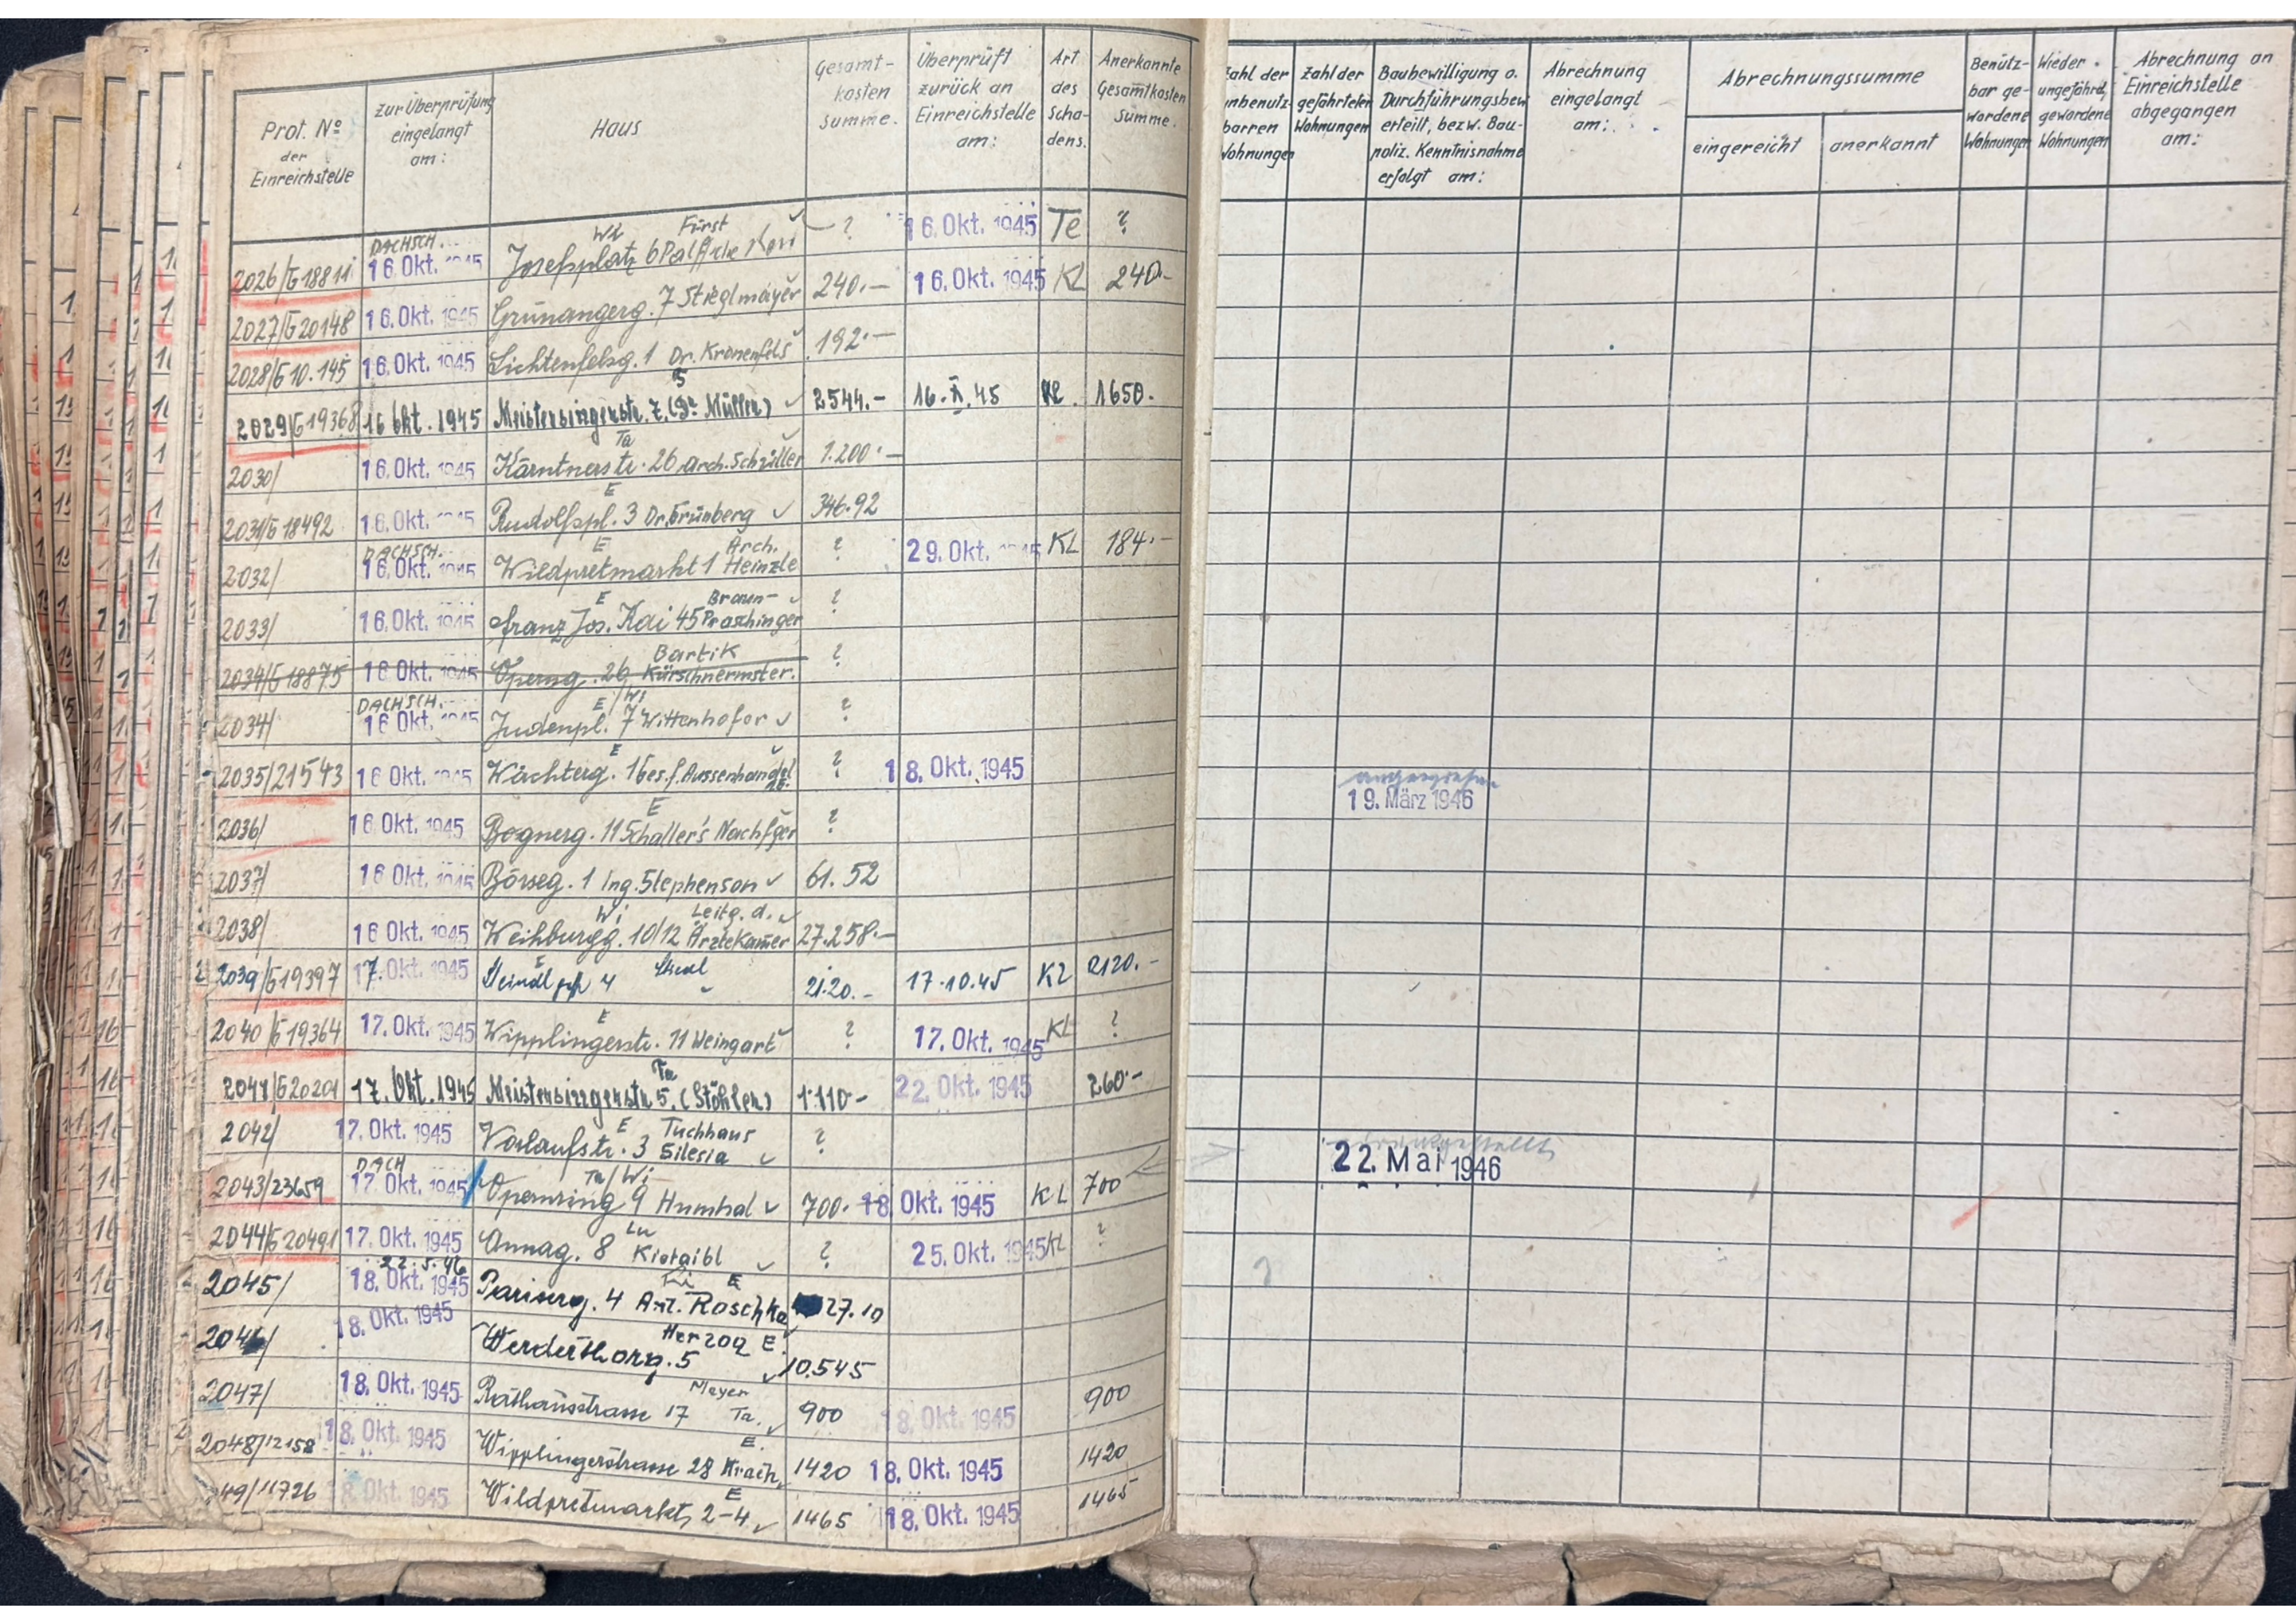 Prot. No der Einreichstelle
zur Überprüfung eingelangt am:
Haus
Gesamtkosten summe.
Überprüft zurück an Einreichstelle am:
Art des Schadens.
Anerkannte Gesamtkosten Summe.
Zahl der unbenutzbarren Wohnungen
Zahl der gefährteten Wohnungen
Baubewilligung o. Durchführungsbew. erteilt, bezw. Baupoliz. Kenntnisnahme erfolgt am:
Abrechnung eingelangt am:
Abrechnungssumme
eingereicht
anerkannt
Benützbar gewordene Wohnungen
Wieder ungefährd. gewordene Wohnungen
Abrechnung an Einreichstelle abgegangen am:
DACHSCH. Wi Fürst
2026/G18811 16. Okt. 1945 Josefsplatz 6 ? 16. Okt. 1945 Te ?
2027/G20148 16. Okt. 1945 Grünangerg. 7 Stieglmayer 240.— 16. Okt. 1945 KL 240.-
2028/G10.145 16. Okt. 1945 Lichtenfelsg. 1 Dr. Kronenfels 192.—
2029/G19368 16 Okt. 1945 Meistersingerstr. 7. (Dr Müller) 2544.- 16.X.45 KL. 1650.-
Ta
2030/ 16. Okt. 1945 Kärntnerstr. 26 Arch. Schuller 1.200.—
E
2031/G18492 16. Okt. 1945 Rudolfspl. 3 Dr. Grünberg 346.92
DACHSCH. E Arch.
2032/ 16. Okt. 1945 Wildpretmarkt 1 Heinzle ? 29. Okt. 1945 KL 184.-
E Braun-
2033/ 16. Okt. 1945 Franz Jos. Kai 45 Praschinger ?
Bartik
2034/G18875 16 Okt. 1945 Operng. 26 Kürschnermster. ?
DACHSCH. E/Wi
2034/ 16 Okt. 1945 Judenpl. 7 Wittenhofer ?
E
2035/21543 16 Okt. 1945 Wächterg. 1 Ges. f. Aussenhandel ? 18. Okt. 1945 19. März 1946
E
2036/ 16 Okt. 1945 Bognerg. 11 Schaller's Nachfger ?
2037/ 16 Okt. 1945 Börseg. 1 Ing. Stephenson 61.52
Wi Leitg. d.
2038/ 16 Okt. 1945 Weihburgg. 10/12 Ärztekamer 27.258.—
E
2039/G19397 17. Okt. 1945 4 2120.- 17.10.45 KL 2120.-
E
2040/G19364 17. Okt. 1945 Wipplingerstr. 11 Weingart ? 17. Okt. 1945 KL ?
Ta
2041/G20201 17. Okt. 1945 Meistersingerstr. 5. (Stöhler) 1.110.- 22. Okt. 1945 260.-
E Tuchhaus
2042/ 17. Okt. 1945 Vorlaufstr. 3 Silesia ? 22. Mai 1946
DACH Ta/Wi
2043/23659 17. Okt. 1945 Opernring 9 Humhal 700.- 18 Okt. 1945 KL 700
2044/G20491 17. Okt. 1945 Annag. 8 Kietaibl ? 25. Okt. 1945 KL ?
22.5.46 E
2045/ 18. Okt. 1945 Pariserg. 4 Ant. Roschka 27.10
Herzog E
2046/ 18. Okt. 1945 Werderthorg. 5 10.545
Meyer
2047/ 18. Okt. 1945 Rathausstrasse 17 Ta. 900 18. Okt. 1945 900
E.
2048/12158 18. Okt. 1945 Wipplingerstrasse 28 1420 18. Okt. 1945 1420
E
49/11726 18. Okt. 1945 Wildpretmarkt 2-4 1465 18. Okt. 1945 1465